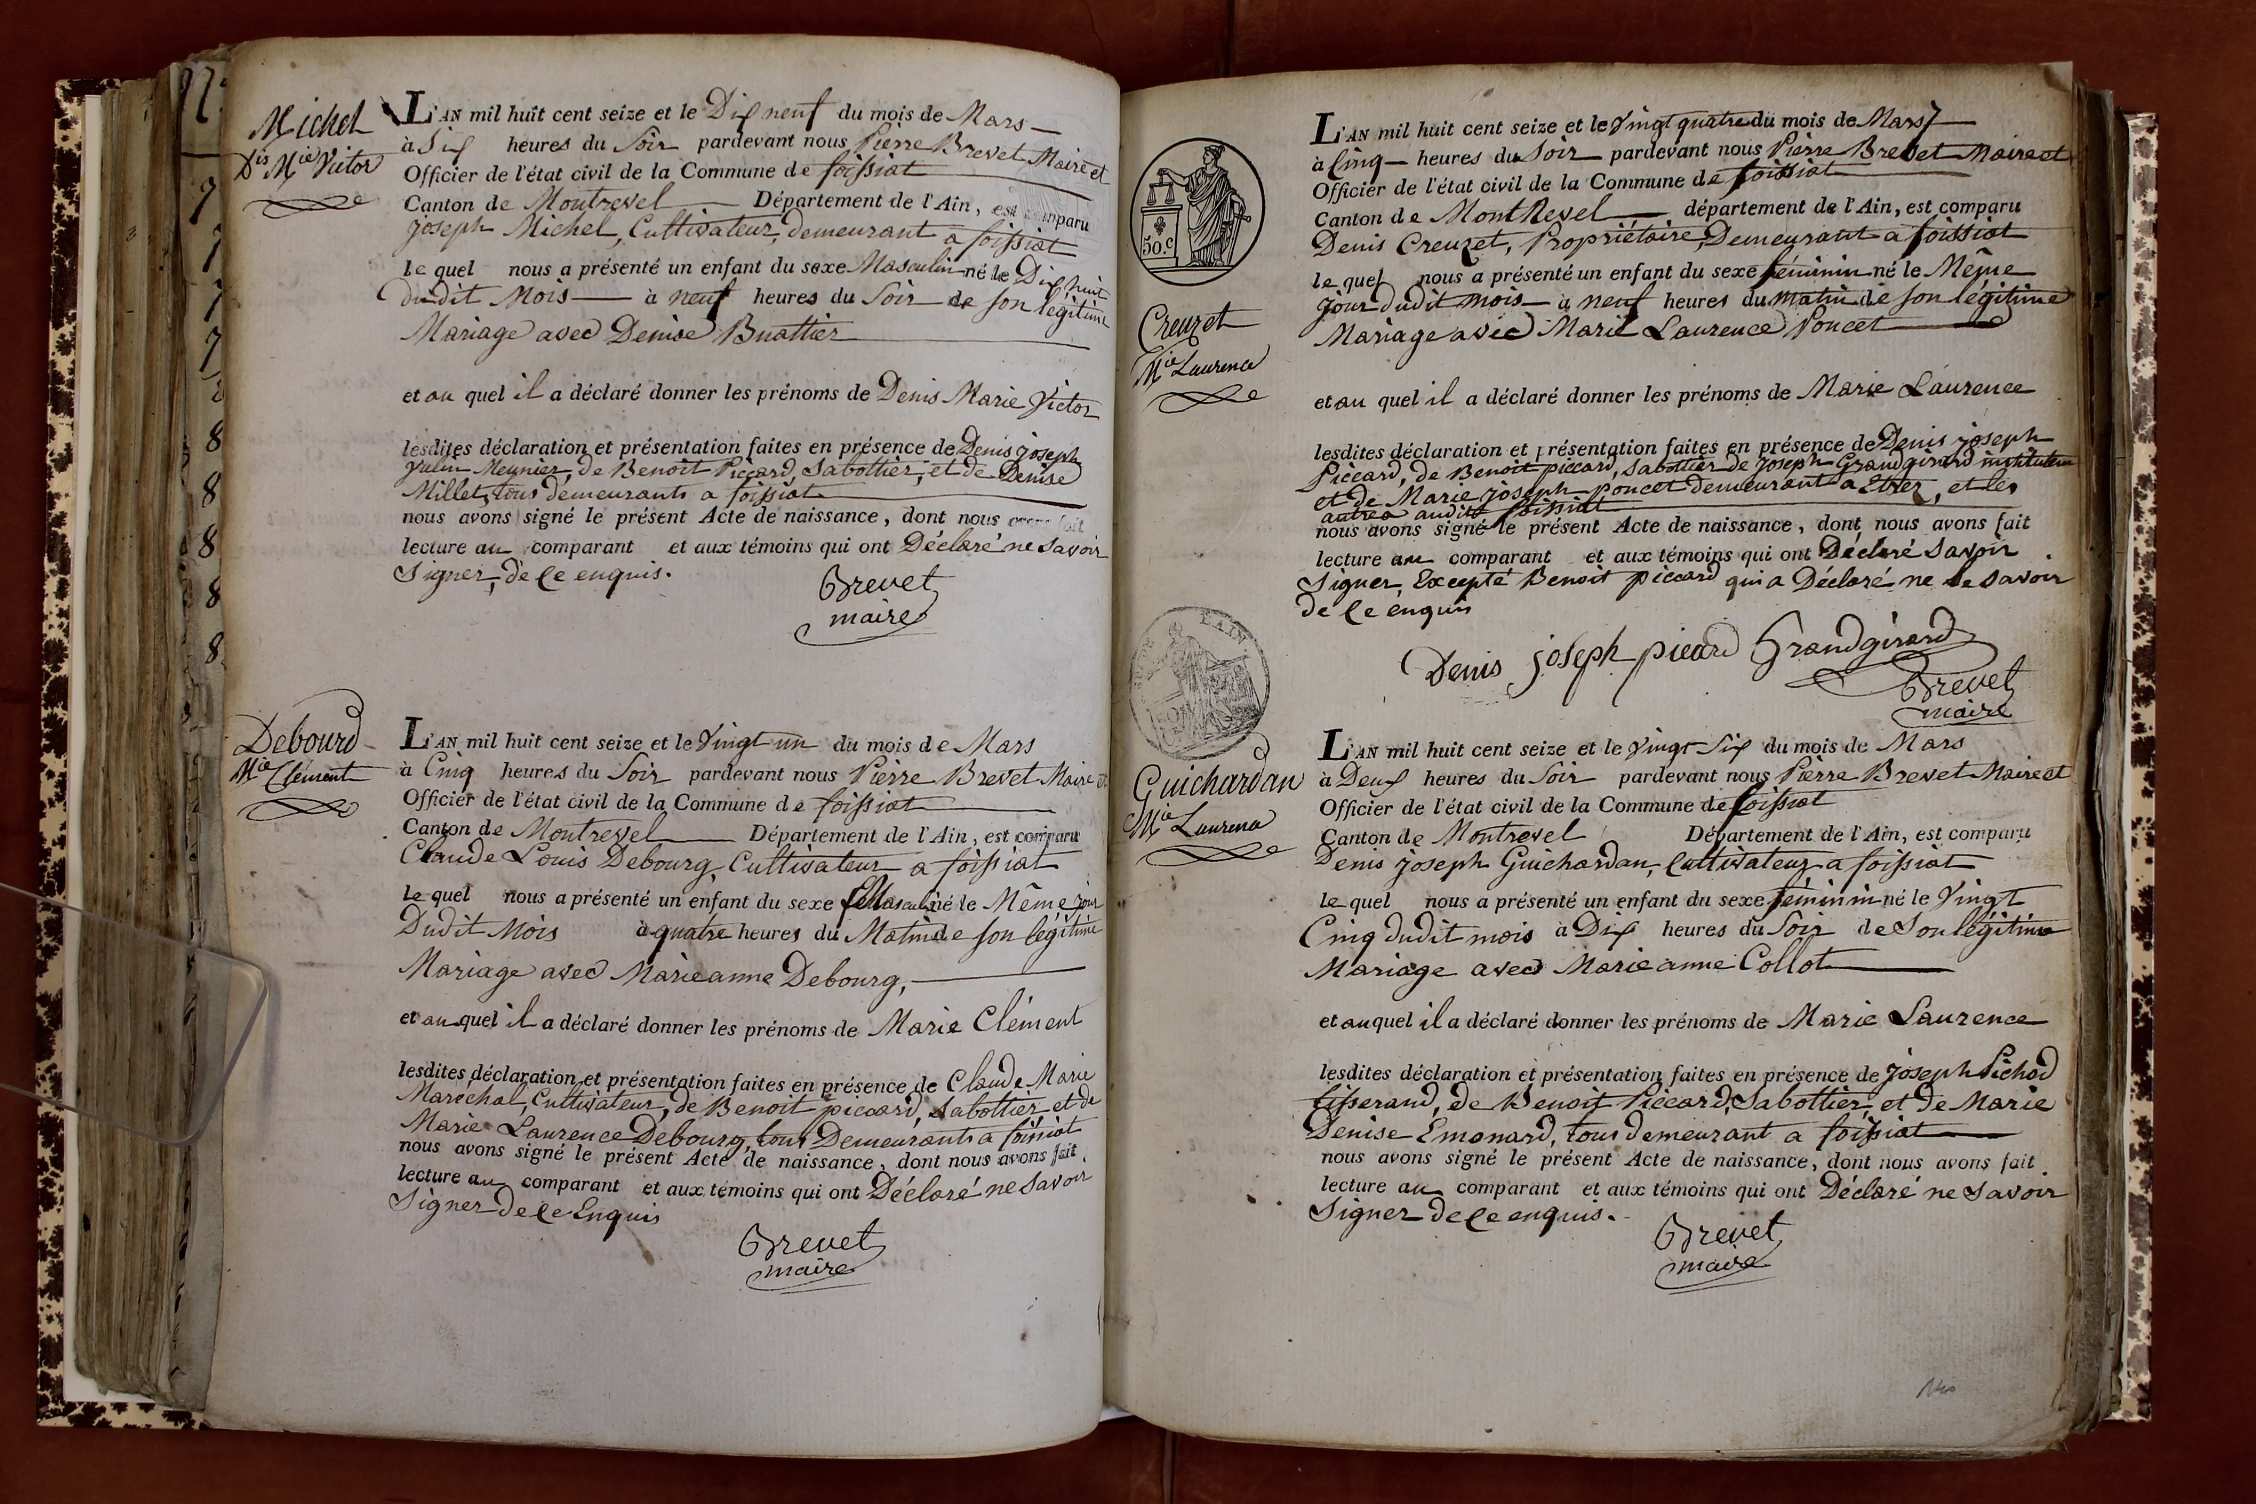 Michel
Dis Mie Victor
L'AN mil huit cent seize et le Dix neuf du mois de Mars
à Six heures du Soir pardevant nous Pierre Brevet Maire et
Officier de l'état civil de la Commune de foissiat
Canton de Montrevel Département de l'Ain, est comparu
joseph Michel, Cultivateur, demeurant a foissiat
le quel nous a présenté un enfant du sexe Masculin né le Dix huit
dudit Mois à neuf heures du Soir de son légitime
Mariage avec Denise Buattier
et au quel il a déclaré donner les prénoms de Denis Marie Victor
lesdites déclaration et présentation faites en présence de Denis joseph
Meynier, de Benoit Piccard, Sabottier, et de Denise
Millet, tous demeurants a foissiat
nous avons signé le présent Acte de naissance, dont nous avons fait
lecture au comparant et aux témoins qui ont Déclaré ne Savoir
Signer, de Ce enquis.
Brevet
maire
Debourd
Mie Clément
L'AN mil huit cent seize et le Vingt un du mois de Mars
à Cinq heures du Soir pardevant nous Pierre Brevet Maire et
Officier de l'état civil de la Commune de foissiat
Canton de Montrevel Département de l'Ain, est comparu
Claude Louis Debourg, Cultivateur a foissiat
le quel nous a présenté un enfant du sexe Masculin né le Même jour
Dudit Mois à quatre heures du Matin de son légitime
Mariage avec Marieanne Debourg,
et au quel il a déclaré donner les prénoms de Marie Clément
lesdites déclaration et présentation faites en présence de Claude Marie
Maréchal, Cultivateur, de Benoit piccard, Sabottier et de
Marie Laurence Debourg, tous Demeurants a foissiat
nous avons signé le présent Acte de naissance, dont nous avons fait
lecture au comparant et aux témoins qui ont Déclaré ne Savoir
Signer de Ce Enquis
Brevet
maire
50.c
Creuzet
Mie Laurence
L'AN mil huit cent seize et le Vingt quatre du mois de Mars
à Cinq heures du Soir pardevant nous Pierre Brevet Maire et
Officier de l'état civil de la Commune de foissiat
Canton de MontRevel département de l'Ain, est comparu
Denis Creuzet, Propriétaire, Demeurant a foissiat
le quel nous a présenté un enfant du sexe féminin né le Même
jour dudit mois à neuf heures du matin de son légitime
Mariage avec Marie Laurence Poncet
et au quel il a déclaré donner les prénoms de Marie Laurence
lesdites déclaration et présentation faites en présence de Denis joseph
Piccard, de Benoit piccard, Sabottier de joseph Grandgirard instituteur
et de Marie joseph Poncet demeurant a Etrez, et les
autres audit foissiat
nous avons signé le présent Acte de naissance, dont nous avons fait
lecture au comparant et aux témoins qui ont Déclaré Savoir
Signer, Excepté Benoit piccard qui a Déclaré ne le Savoir
de Ce enquis
Denis joseph picard Grandgirard
Brevet
maire
L'AIN
Guichardan
Mie Laurence
L'AN mil huit cent seize et le Vingt Six du mois de Mars
à Deux heures du Soir pardevant nous Pierre Brevet Maire et
Officier de l'état civil de la Commune de foissiat
Canton de Montrevel Département de l'Ain, est comparu
Denis joseph Guichardan, Cultivateur a foissiat
le quel nous a présenté un enfant du sexe féminin né le Vingt
Cinq dudit mois à Dix heures du Soir de Son légitime
Mariage avec Marie anne Collot
et au quel il a déclaré donner les prénoms de Marie Laurence
lesdites déclaration et présentation faites en présence de joseph Pichod
tisserand, de Benoit Piccard, Sabottier, et de Marie
Denise Emonard, tous demeurant a foissiat
nous avons signé le présent Acte de naissance, dont nous avons fait
lecture au comparant et aux témoins qui ont Déclaré ne Savoir
Signer de Ce enquis.
Brevet
maire